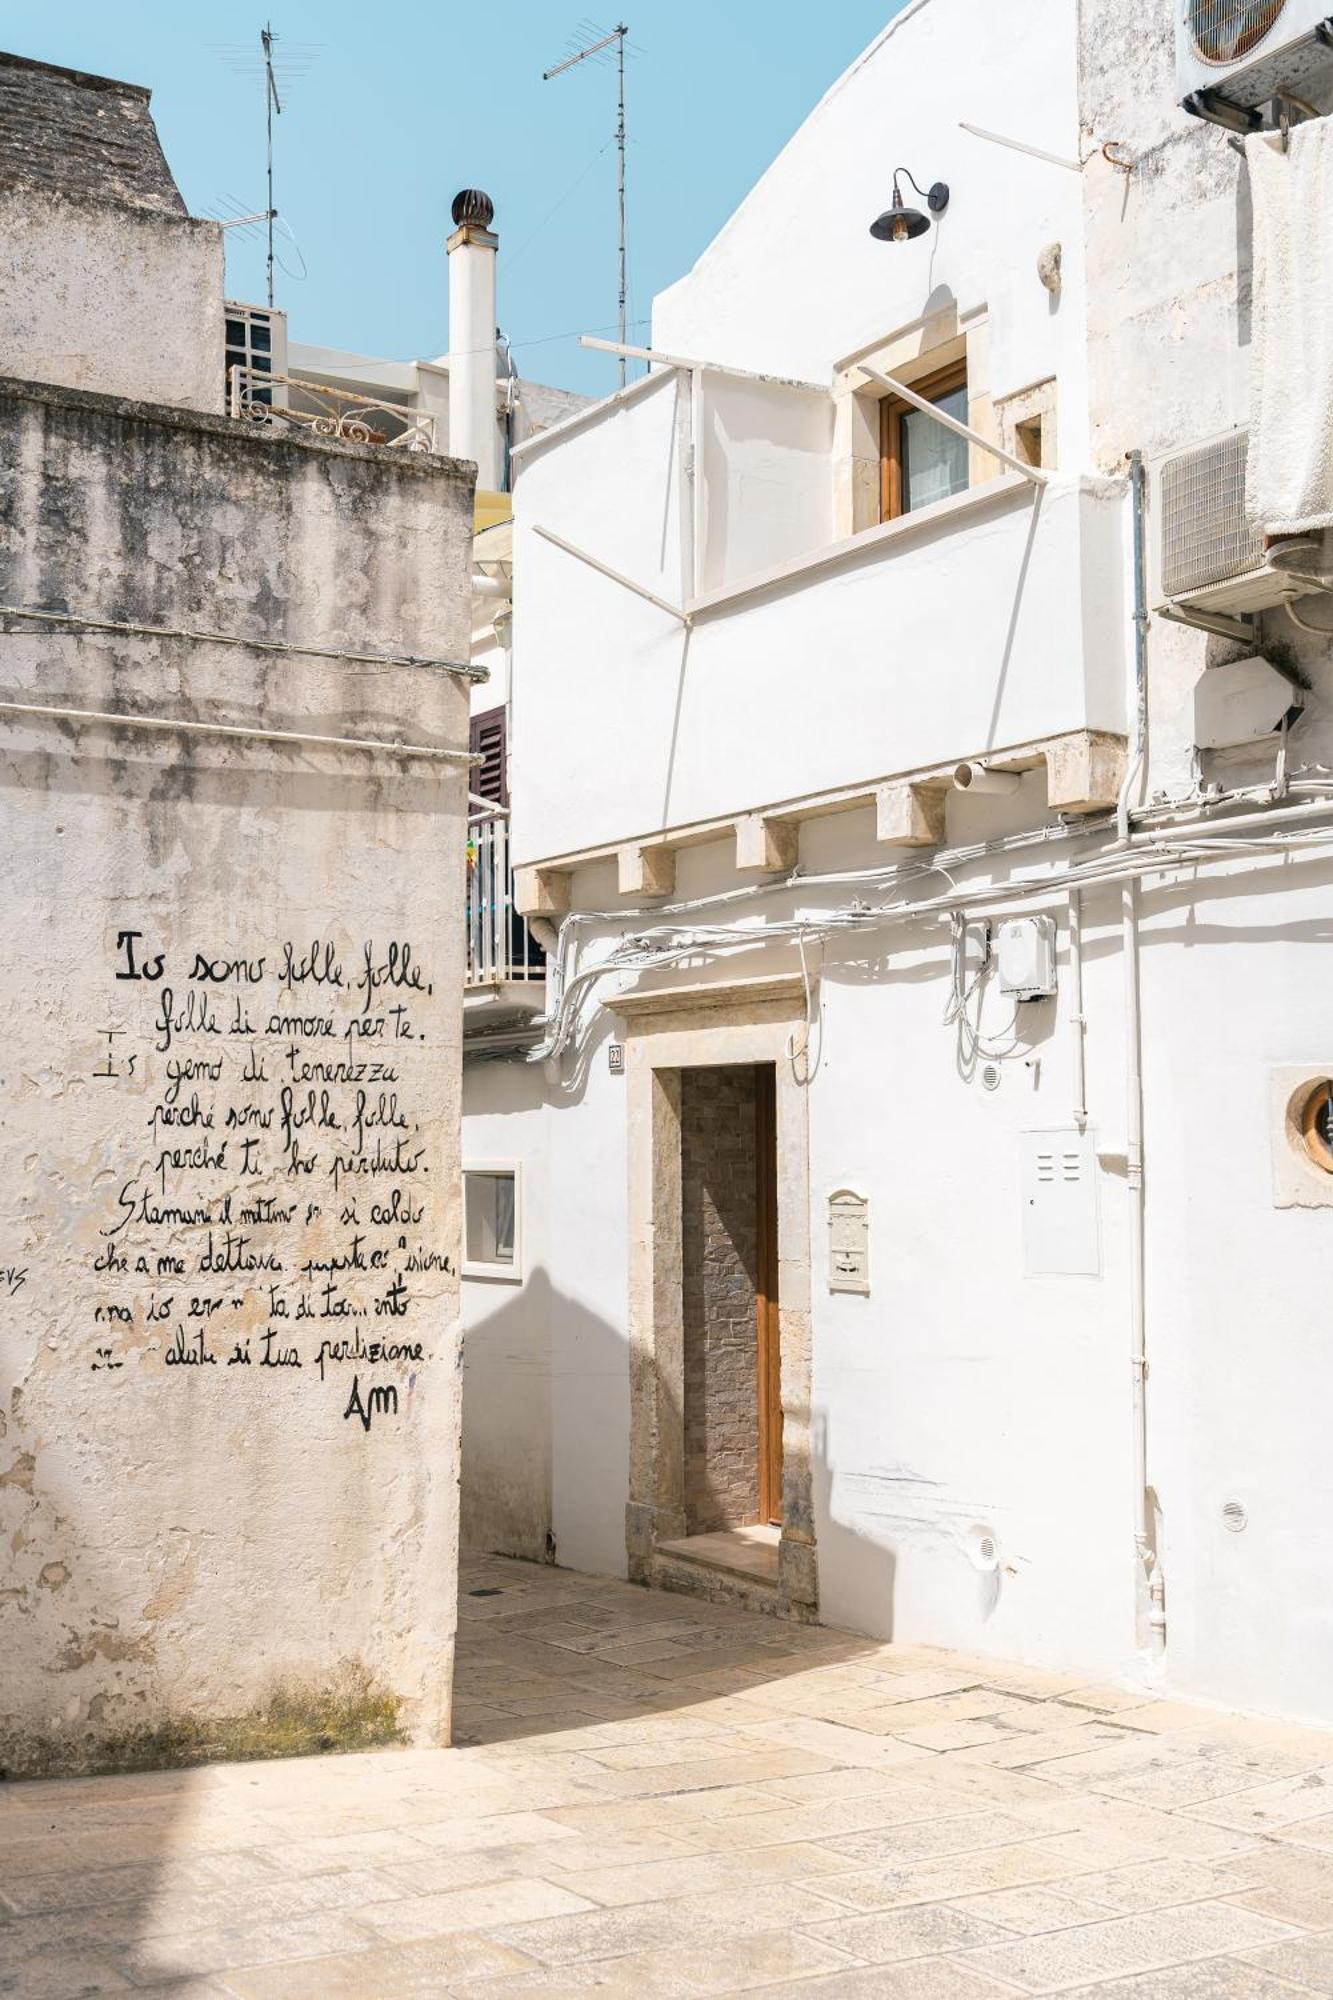 Io sono folle, folle,
folle di amore per te.
gemo di tenerezza
perché sono folle, folle,
perché ti ho perduto.
Stamani il mattino si caldo
che a me dettava questa
ma io di
di tua perdizione.
Am
22